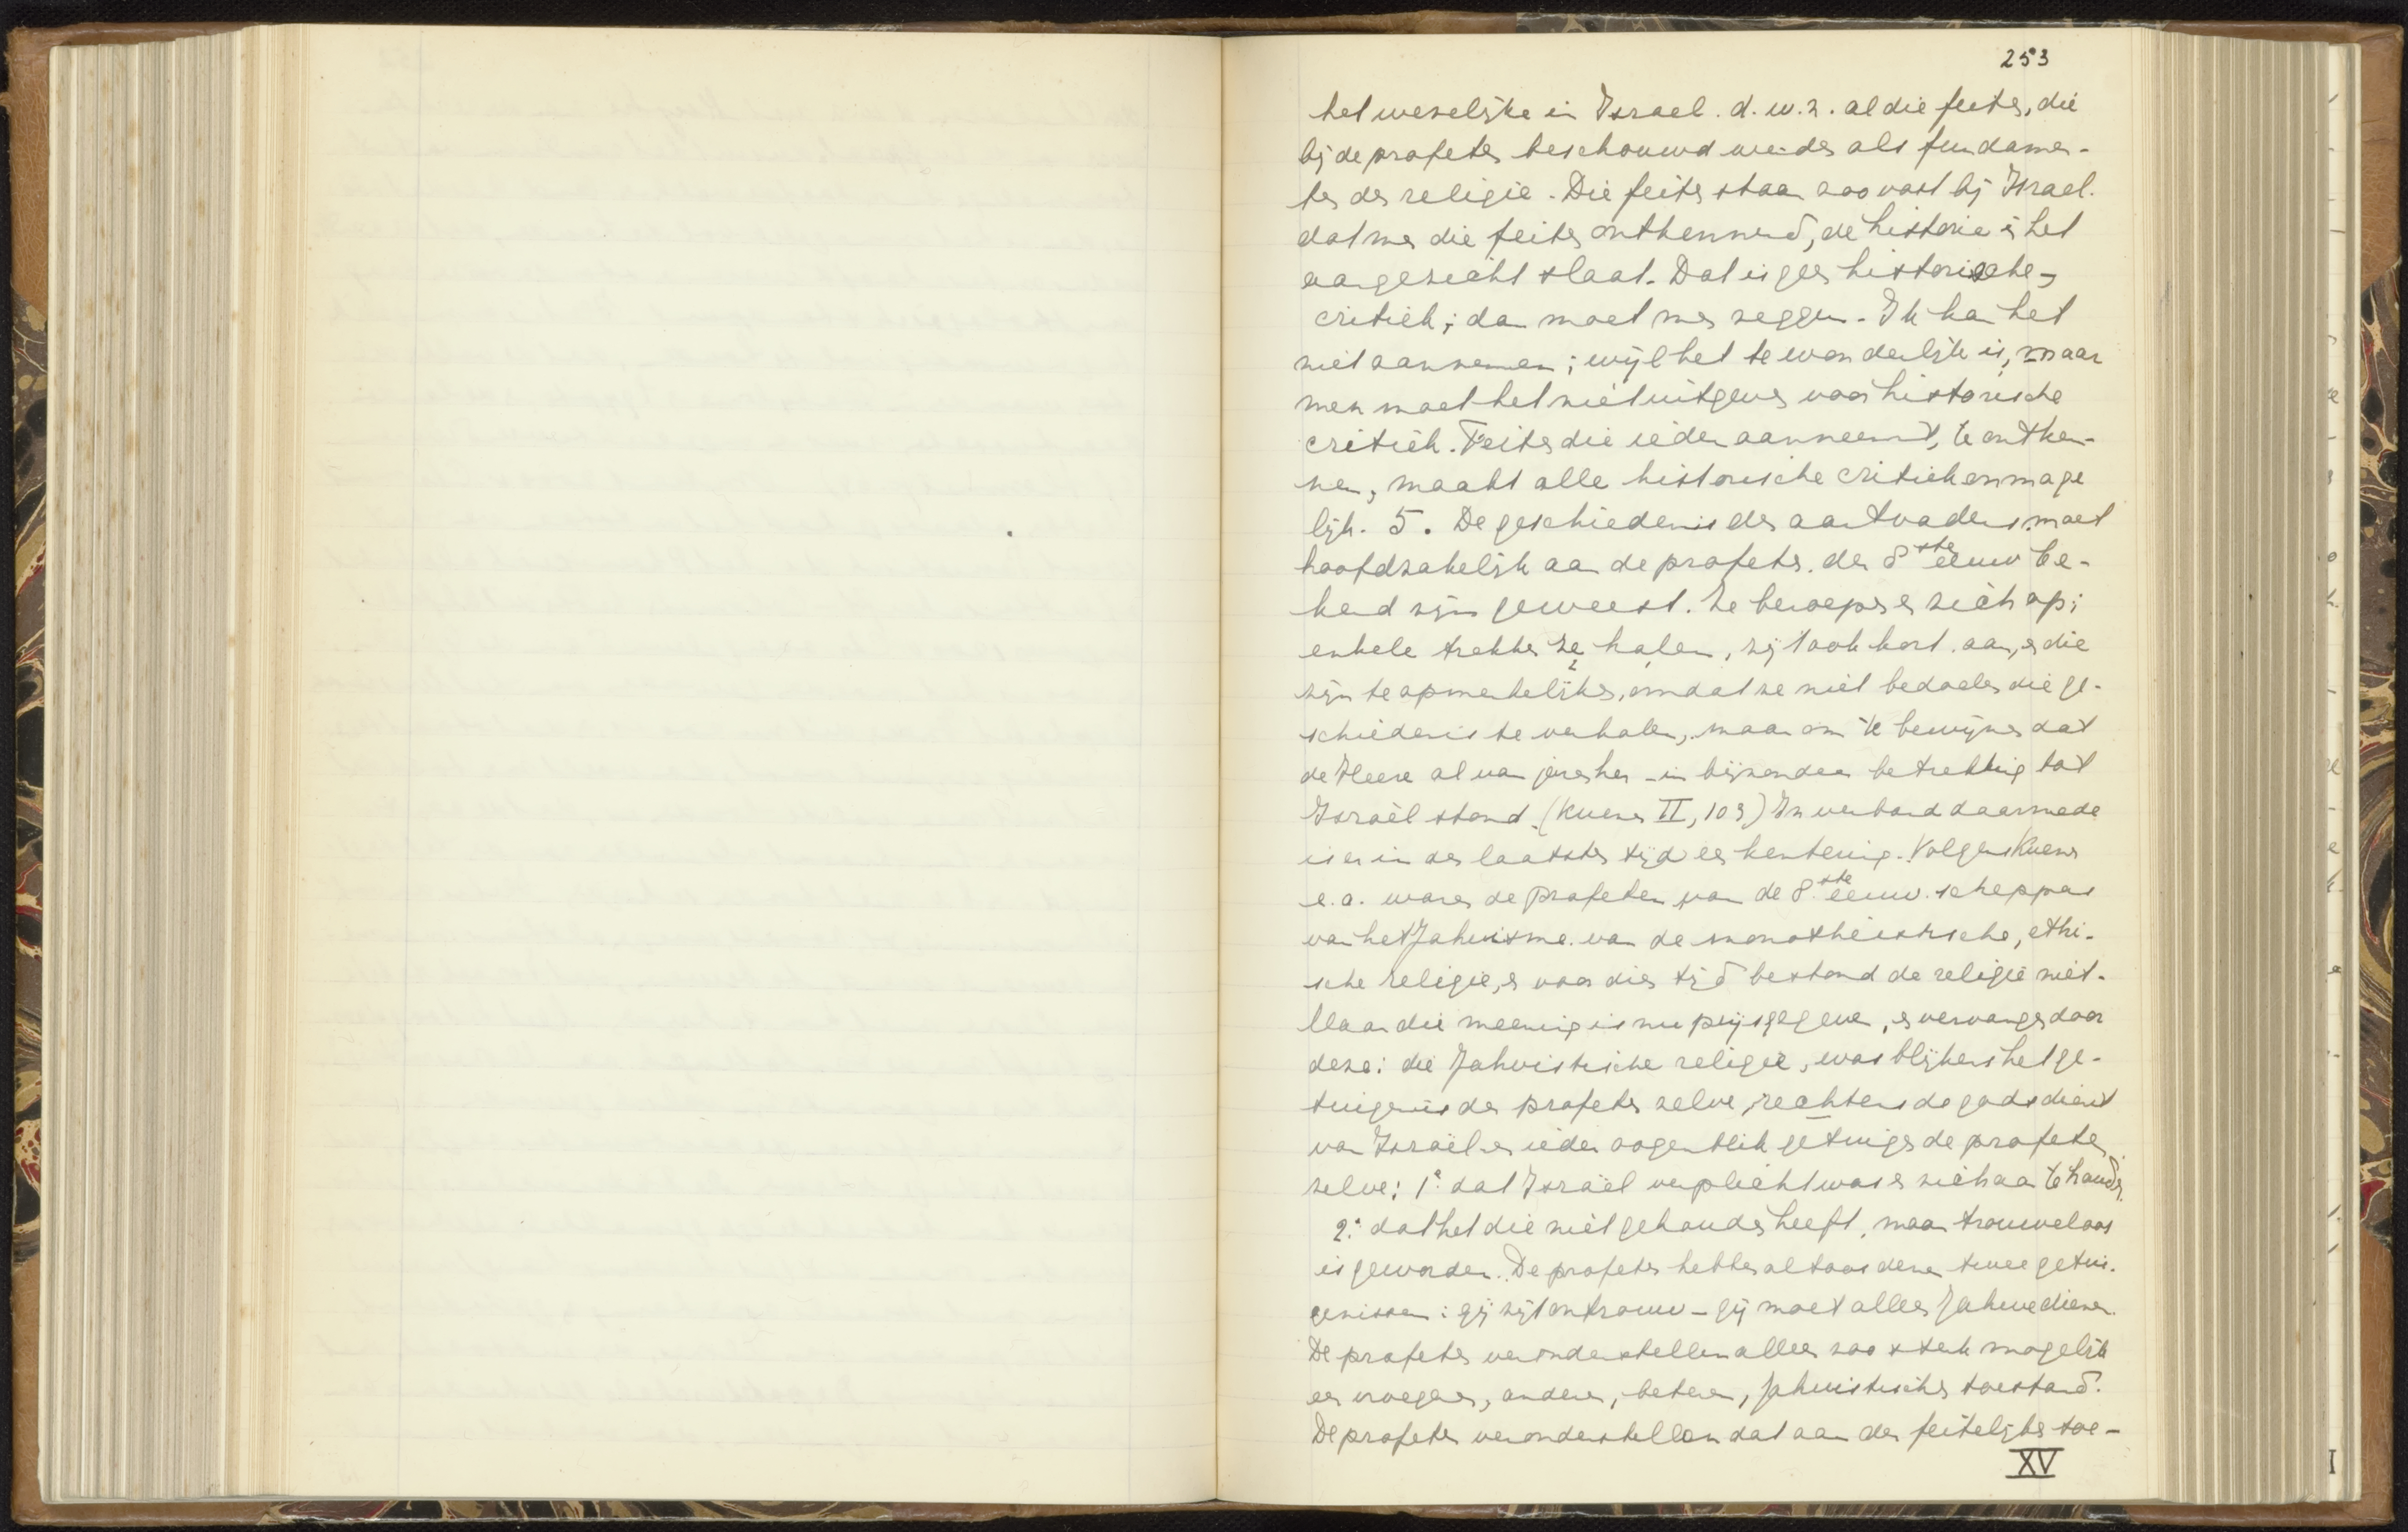 253
het weselijke in Israel. d.w.z. al die feiten, die
bij de profeten beschouwd werden als fundamen-
ten der religie. Die feiten staan zoo vast bij Israel.
dat men die feiten ontkennend, de historie in het
aangezicht slaat. Dat is geen historische-
critiek; dan moet men zeggen. Ik kan het
niet aannemen; wijl het te wonderlijk is, maar
men moet het niet uitgeven voor historische
critiek. Feiten die ieder aanneemt, te ontken-
nen, maakt alle historische critiek onmoge
lijk. 5. De geschiedenis der aartvaders moet
hoofdzakelijk aan de profeten der 8ste eeuw be-
kend zijn geweest. Ze beroepen er zich op;
enkele trekken ze halen, zij 't ook kort aan, en die
zijn te opmerkelijker, omdat ze niet bedoelen die ge-
schiedenis te verhalen, maar om te bewijzen dat
de Heere al van jonsher in bijzondere betrekking tot
Israël stond. (Kuenen II, 103) In verband daarmede
is er in den laatsten tijd een kentering. Volgens Kuenen
e.a. waren de profeten van de 8ste eeuw scheppers
van het Jahvisme van de monotheïstische, ethi-
sche religie, en voor dien tijd bestond de religie niet.
Maar die meening is nu prijsgegeven, en vervangen door
deze: die Jahvistische religie, was blijkens het ge-
tuigenis der profeten zelve, rechtens de godsdienst
van Israël en ieder oogenblik getuigen de profeten
zelve: 1° dat Israël verplicht was er zich aan te houden.
2° dat het die niet gehouden heeft, maar trouweloos
is geworden. De profeten hebben altoos deze twee getui-
genissen: gij zijt ontrouw - gij moet alleen Jahwe dienen.
De profeten veronderstellen alleen zoo sterk mogelijk
een vroegeren, anderen, beteren, Jahvistischen toestand.
De profeten veronderstellen dat aan den feitelijken toe-
XV